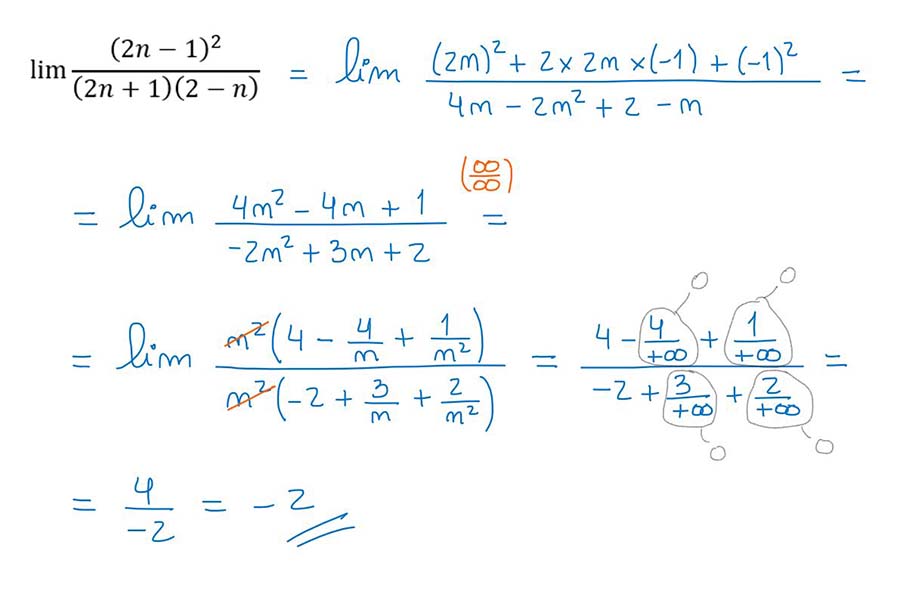 lim (2n − 1)² / (2n + 1)(2 − n) = lim (2n)² + 2 × 2n × (−1) + (−1)² / 4n − 2n² + 2 − n =
= lim 4n² − 4n + 1 / −2n² + 3n + 2 (∞/∞) =
= lim n²(4 − 4/n + 1/n²) / n²(−2 + 3/n + 2/n²) = 4 − 4/+∞ + 1/+∞ / −2 + 3/+∞ + 2/+∞ = 0 0 0 0
= 4/−2 = −2